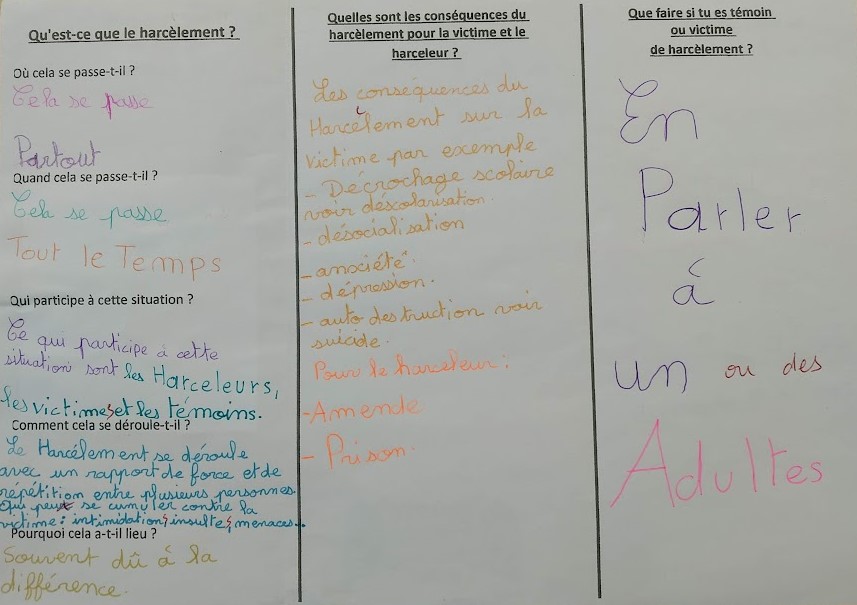 Qu'est-ce que le harcèlement ?
Où cela se passe-t-il ?
Cela se passe
Partout
Quand cela se passe-t-il ?
Cela se passe
Tout le Temps
Qui participe à cette situation ?
Ce qui participe à cette
situation sont les Harceleurs,
les victimes et les témoins.
Comment cela se déroule-t-il ?
Le Harcélement se déroule
avec un rapport de force et de
répétition entre plusieurs personnes.
Qui peut se cumuler contre la
victime : intimidations, insultes, menaces...
Pourquoi cela a-t-il lieu ?
Souvent dû á la
différence.
Quelles sont les conséquences du
harcèlement pour la victime et le
harceleur ?
Les conséquences du
Harcèlement sur la
victime par exemple
- Décrochage scolaire
voir déscolarisation.
- désocialisation
- anxiété.
- dépression.
- auto destruction voir
suicide.
Pour le harceleur :
- Amende
- Prison.
Que faire si tu es témoin
ou victime
de harcèlement ?
En
Parler
á
un ou des
Adultes